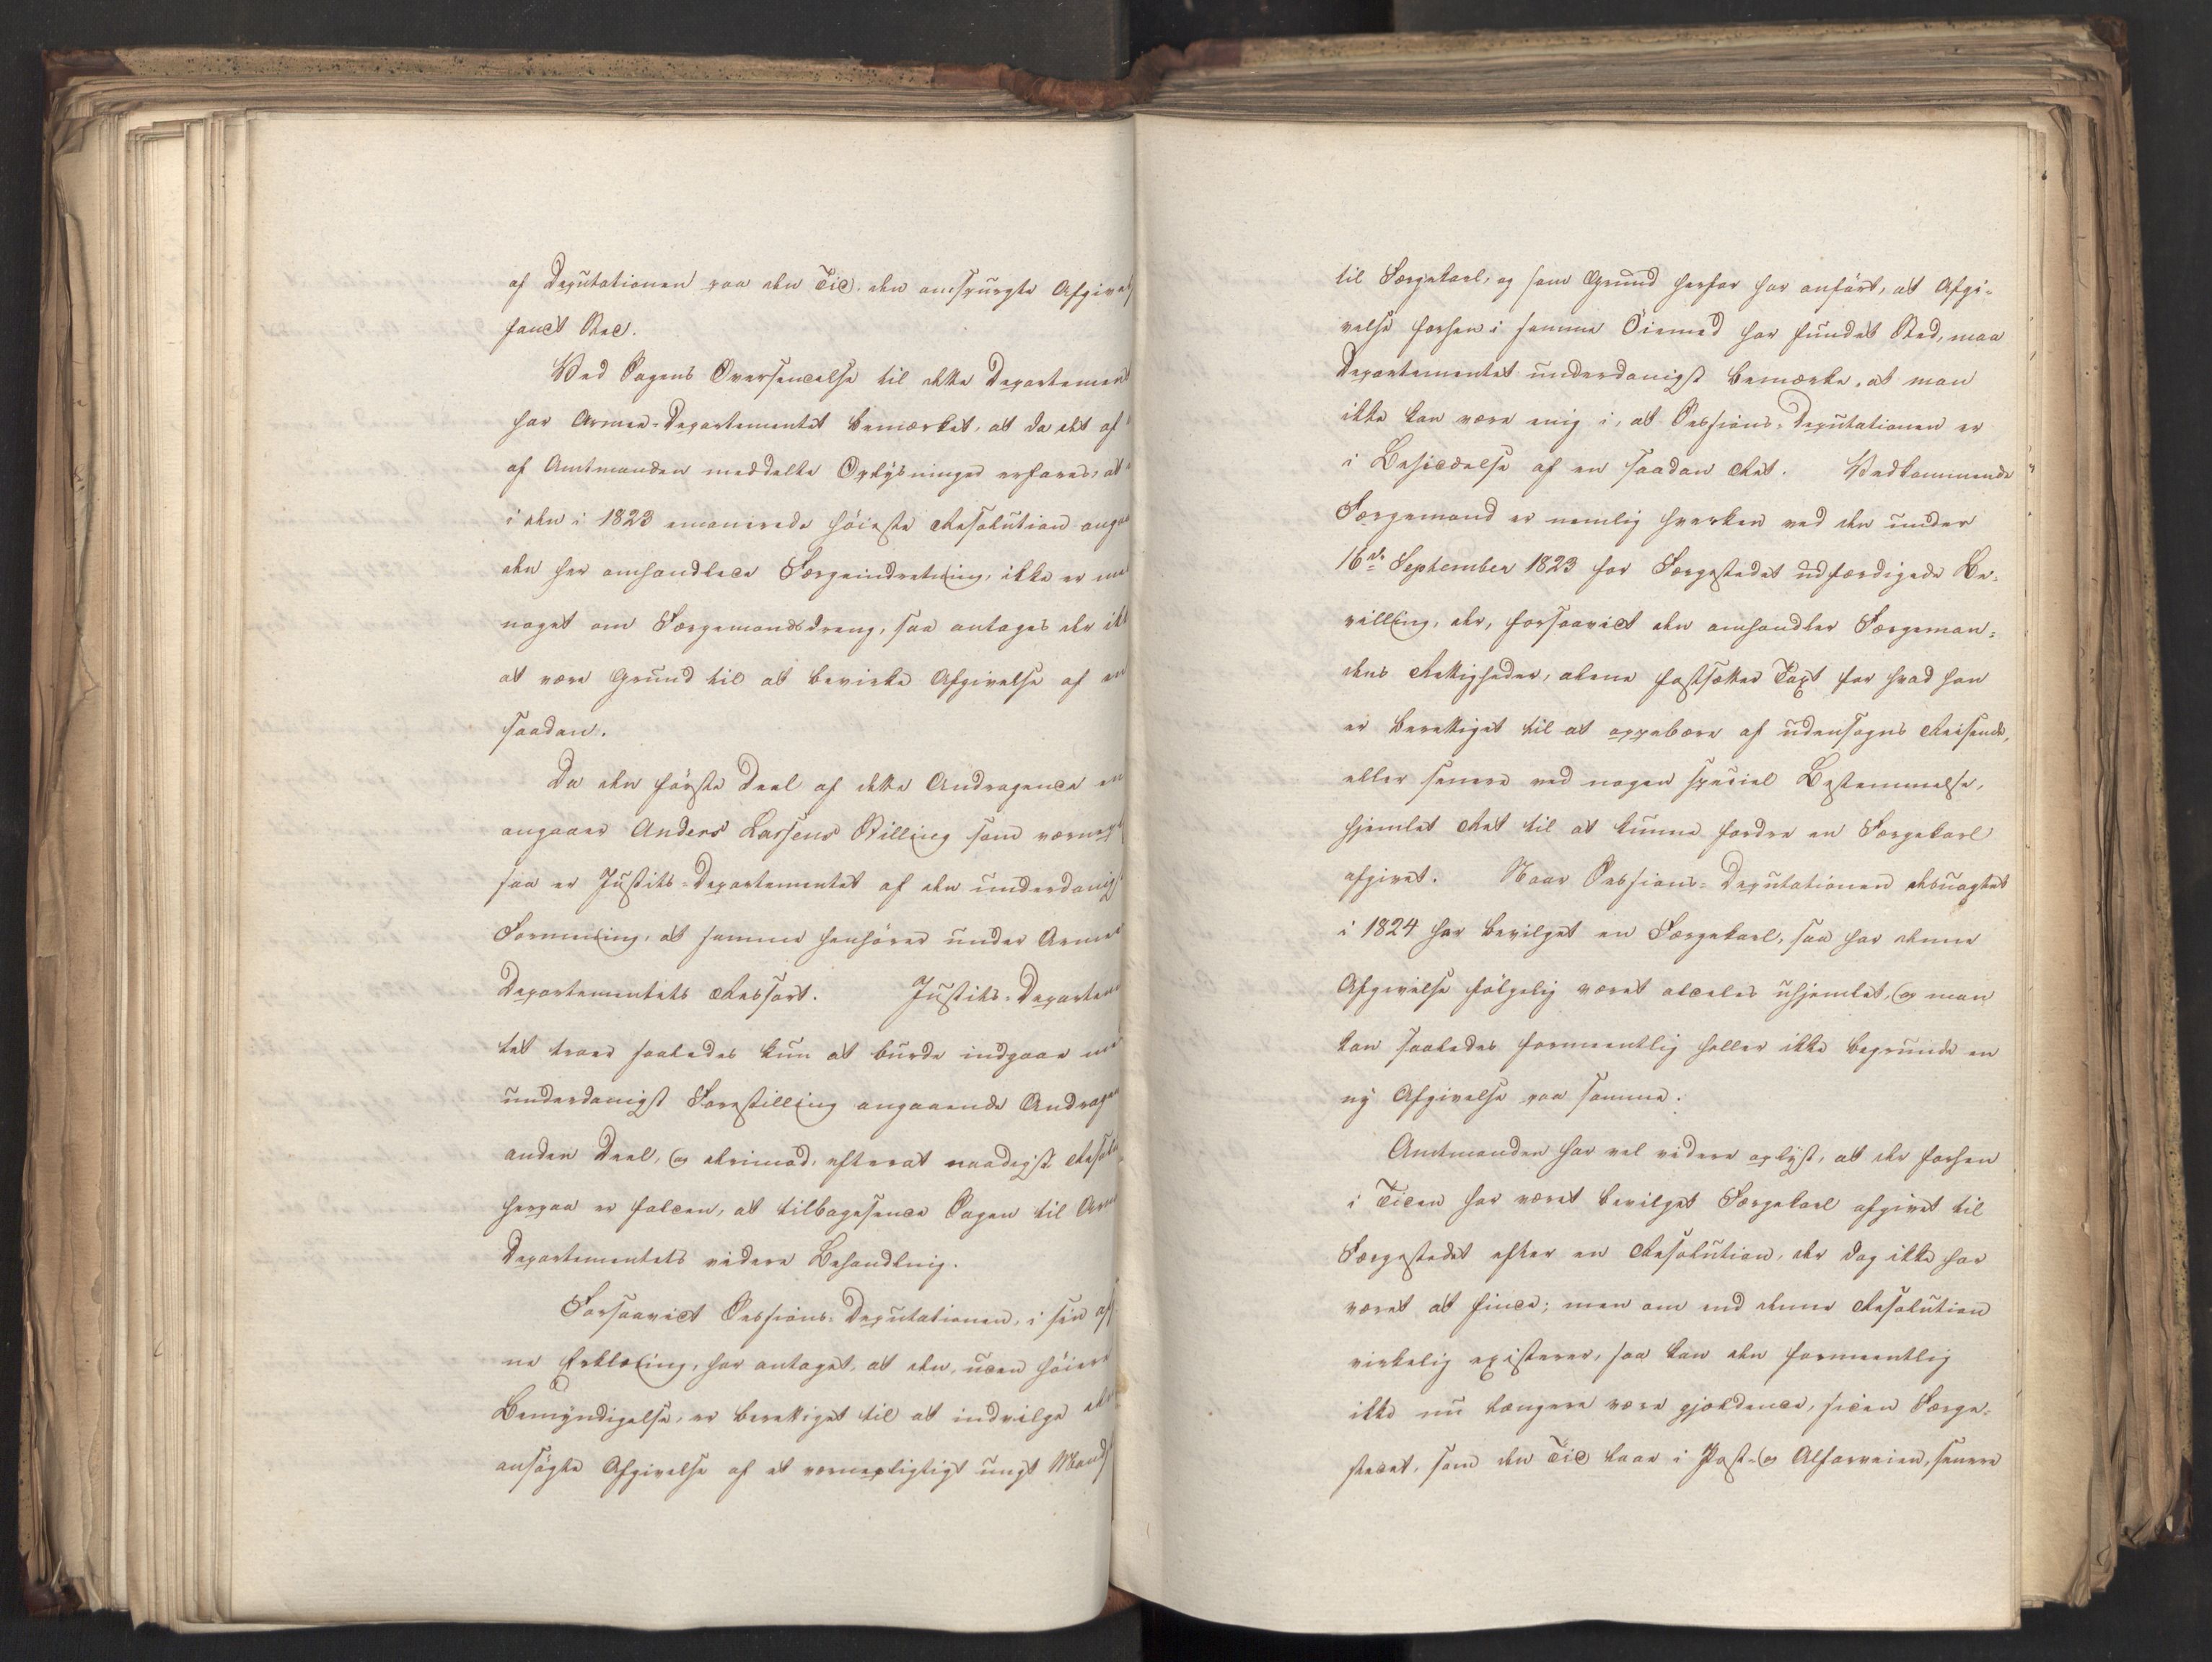 af Deputationen paa den Tid den omspurgte Afgivels
fandt Sted.
Ved Sagens Oversendelse til dette Departement
har Armee-Departementet bemærket, at da det af
af Amtmanden meddelte Oplysninger erfares, at
i den i 1823 emanerede høieste Resolution anga
den her omhandlede Færgeindretning, ikke er
noget om Færgemandsdreng, saa antages der ikk
at være Grund til at bevirke Afgivelse af en
saadan.
Da den første Deel af dette Andragende
angaaer Anders Larsens Stilling som værnep
saa er Justits-Departementet af den underdanigs
Formening, at samme henhører under Armee
Departementets Ressort. Justits-Departeme
tet troer saaledes kun at burde indgaae me
underdanigst Forestilling angaaende Andrage
anden Deel, og derimod, efterat naadigst Resolu
herpaa er falden, at tilbagesende Sagen til Arme
Departementets videre Behandling.
Forsaavidt Sessions-Deputationen, i sin af
ne Erklæring, har antaget, at den, uden høiere
Bemyndigelse, er berettiget til at indvilge den
ansøgte Afgivelse af et værnepligtigt ungt Mands
til Færgekarl, og som Grund herfor har anført, at Afgi-
velse forhen i samme Öiemed har fundet Sted, maa
Departementet underdanigst bemærke, at man
ikke kan være enig i, at Sessions-Deputationen er
i Besiddelse af en saadan Ret. Vedkommende
Færgemand er nemlig hverken ved den under
16de September 1823 for Færgestedet udfærdigede Be-
villing, der, forsaavidt den omhandler Færgeman-
dens Rettigheder, alene fastsætter Taxt for hvad han
er berettiget til at oppebære af udensogns Reisende,
eller senere ved nogen speciel Bestemmelse,
hjemlet Ret til at kunne fordre en Færgekarl
afgivet. Naar Sessions-Deputationen desuagtet
i 1824 har bevilget en Færgekarl, saa har denne
Afgivelse følgelig været aldeles uhjemlet, og man
kan saaledes formeentlig heller ikke begrunde en
ny Afgivelse paa samme.
Amtmanden har vel videre oplyst, at der forhen
i Tiden har været bevilget Færgekarl afgivet til
Færgestedet efter en Resolution, der dog ikke har
været at finde; men om end denne Resolution
virkelig existerer, saa kan den formeentlig
ikke nu længere være gjældende, siden Færge-
stedet, som den Tid laae i Post- og Alfarveien, senere